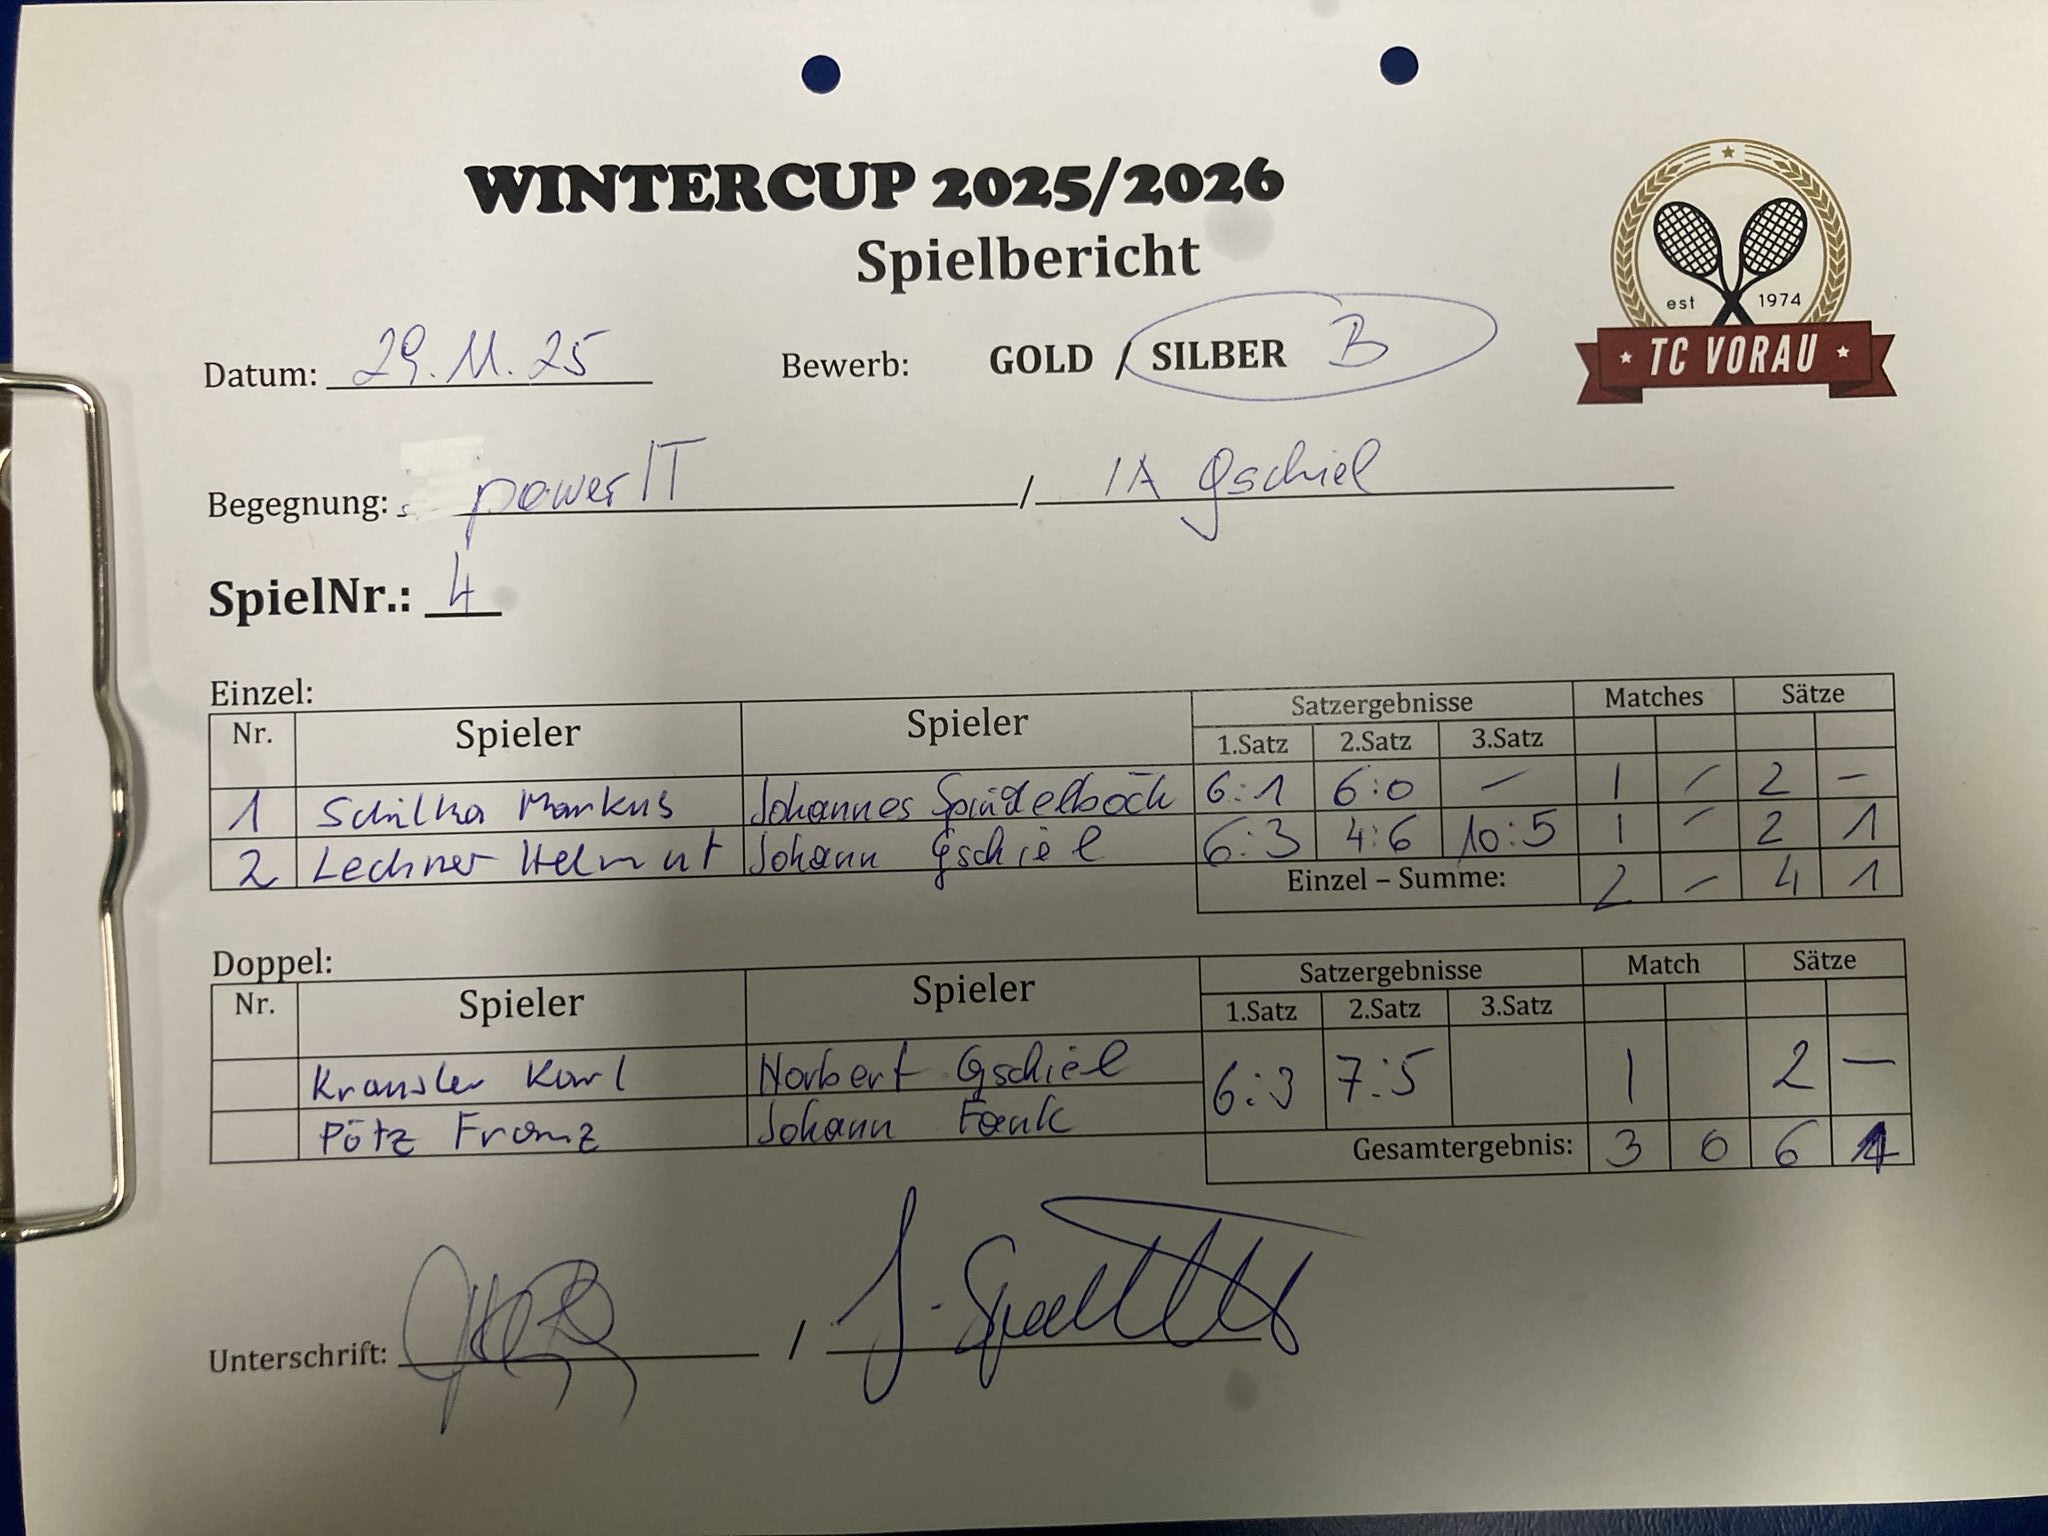 WINTERCUP 2025/2026
Spielbericht
est 1974
TC VORAU
Datum: 29.11.25 Bewerb: GOLD / SILBER B
Begegnung: powerIT / 1A Gschiel
SpielNr.: 4
Einzel:
Nr. Spieler Spieler Satzergebnisse Matches Sätze
1.Satz 2.Satz 3.Satz
1 Schilka Markus Johannes Spindelböck 6:1 6:0 – 1 – 2 –
2 Lechner Helmut Johann Gschiel 6:3 4:6 10:5 1 – 2 1
Einzel – Summe: 2 – 4 1
Doppel:
Nr. Spieler Spieler Satzergebnisse Match Sätze
1.Satz 2.Satz 3.Satz
Kransler Karl Norbert Gschiel 6:3 7:5 1 2 –
Pötz Franz Johann Fank
Gesamtergebnis: 3 0 6 1
Unterschrift: /